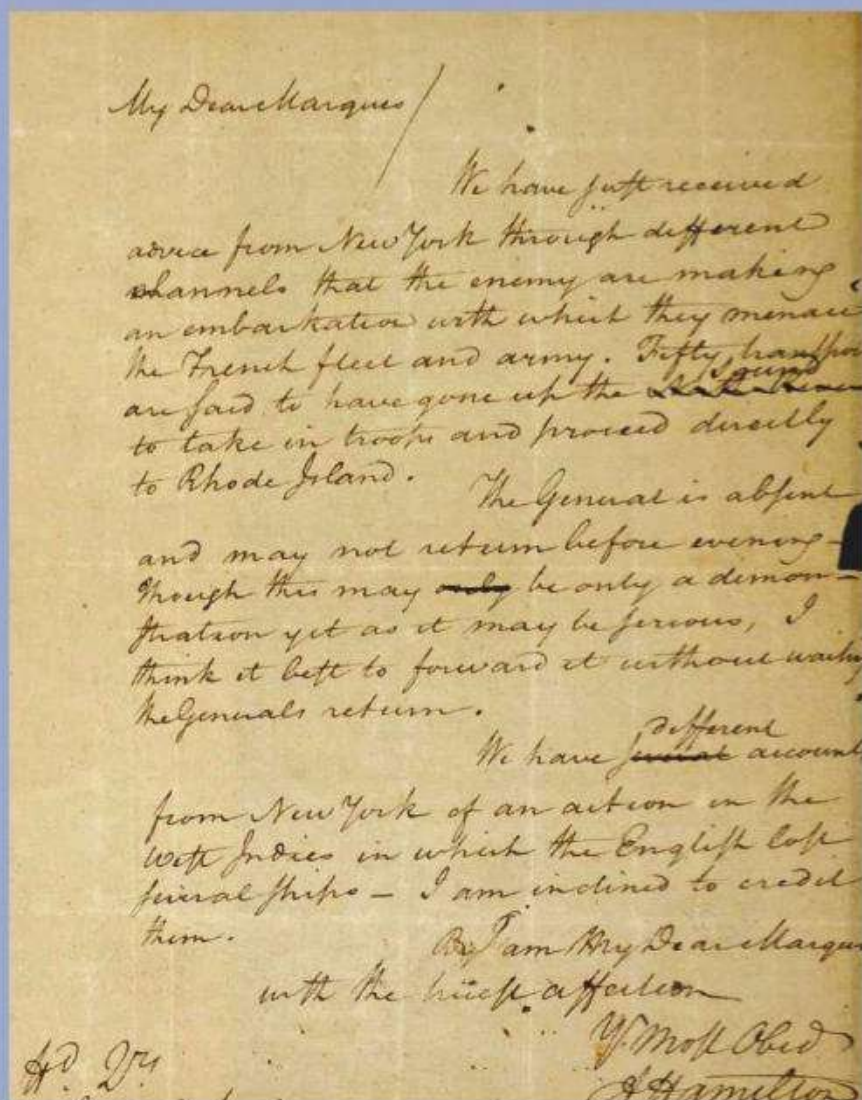 My Dear Marquis
We have just received
advice from New York through different
channels that the enemy are making
an embarkation with which they menace
the French fleet and army. Fifty transpor
Sound
are said to have gone up the
to take in troops and proceed directly
to Rhode Island.
The General is absent
and may not return before evening -
though this may only be only a demon-
stration yet as it may be serious, I
think it best to forward it without waiting
the Generals return.
different
We have several accounts
from New York of an action in the
West Indies in which the English lost
several ships - I am inclined to credit
them.
I am My Dear Marquis
with the truest affection
Yr. Most Obed
A Hamilton
Hd. Qrs